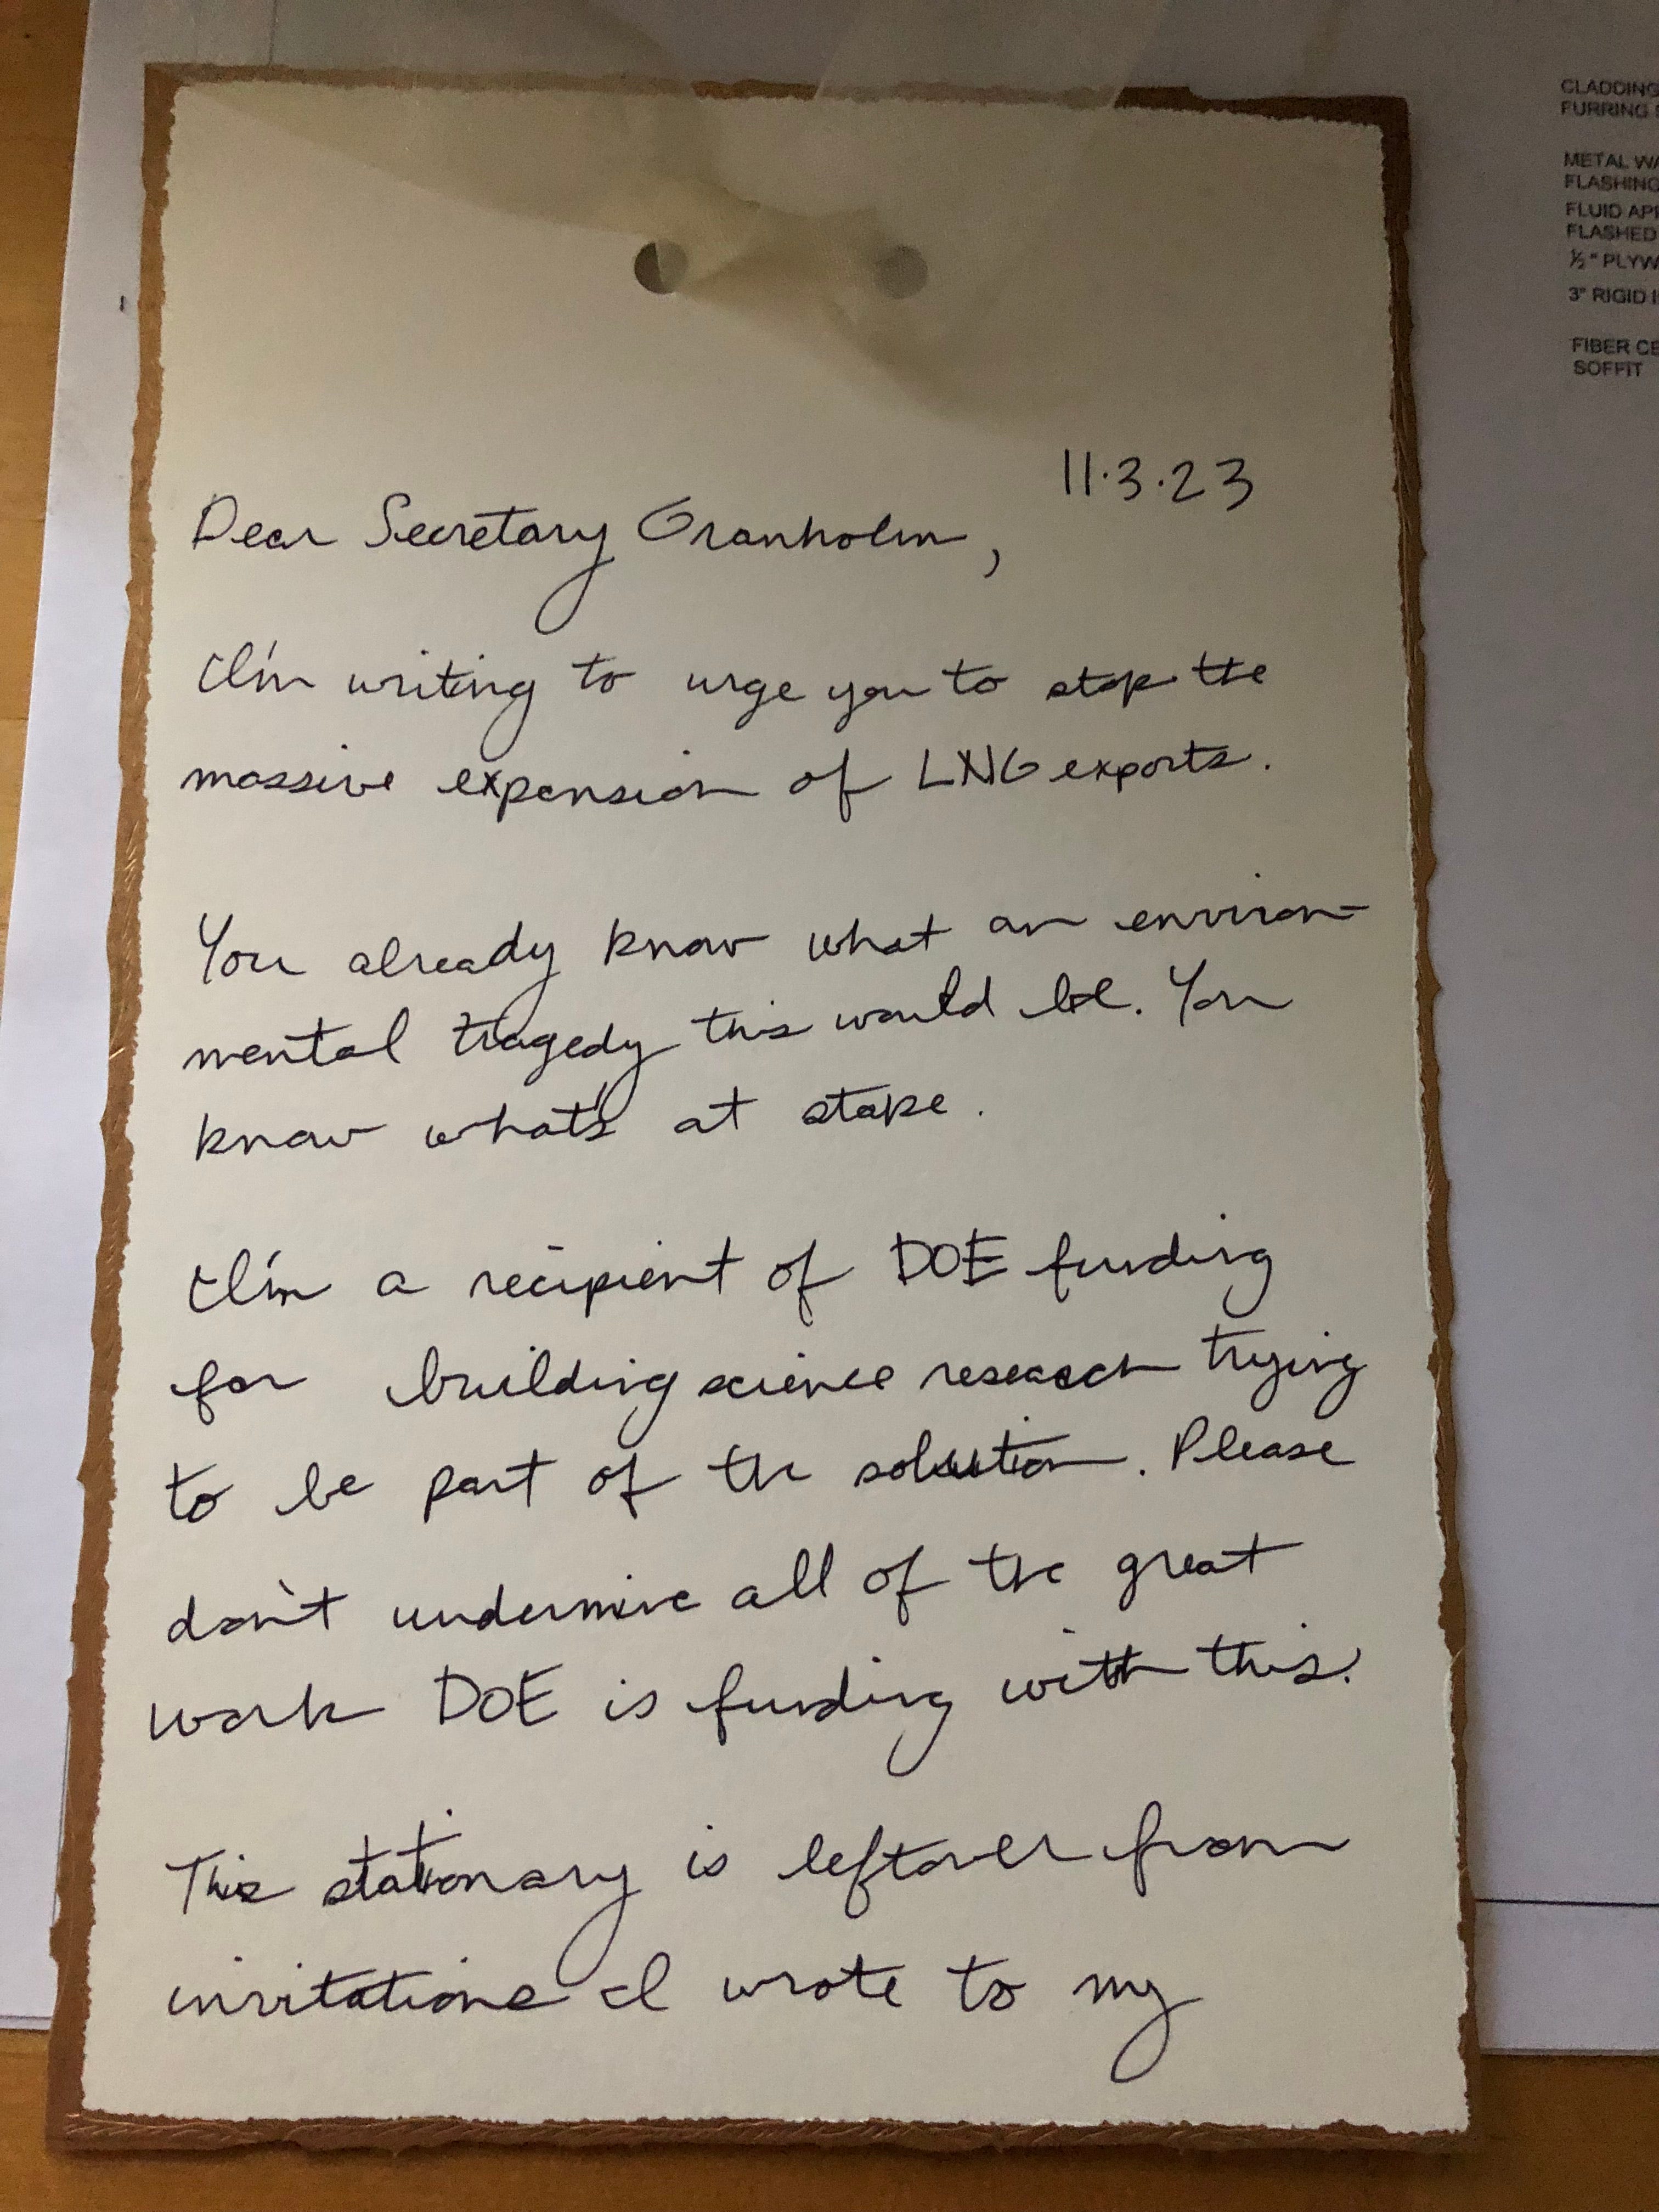 11.3.23
Dear Secretary Granholm,
I'm writing to urge you to stop the
massive expension of LNG exports.
You already know what an environ-
mental tragedy this would be. You
know what's at stake.
I'm a recipient of DOE funding
for building science research trying
to be part of the solution. Please
don't undermine all of the great
work DOE is funding with this!
This stationary is leftover from
invitations I wrote to my
CLADDING
FURRING
METAL
FLASHING
FLUID
FLASHED
½" 
3" RIGID
FIBER
SOFFIT